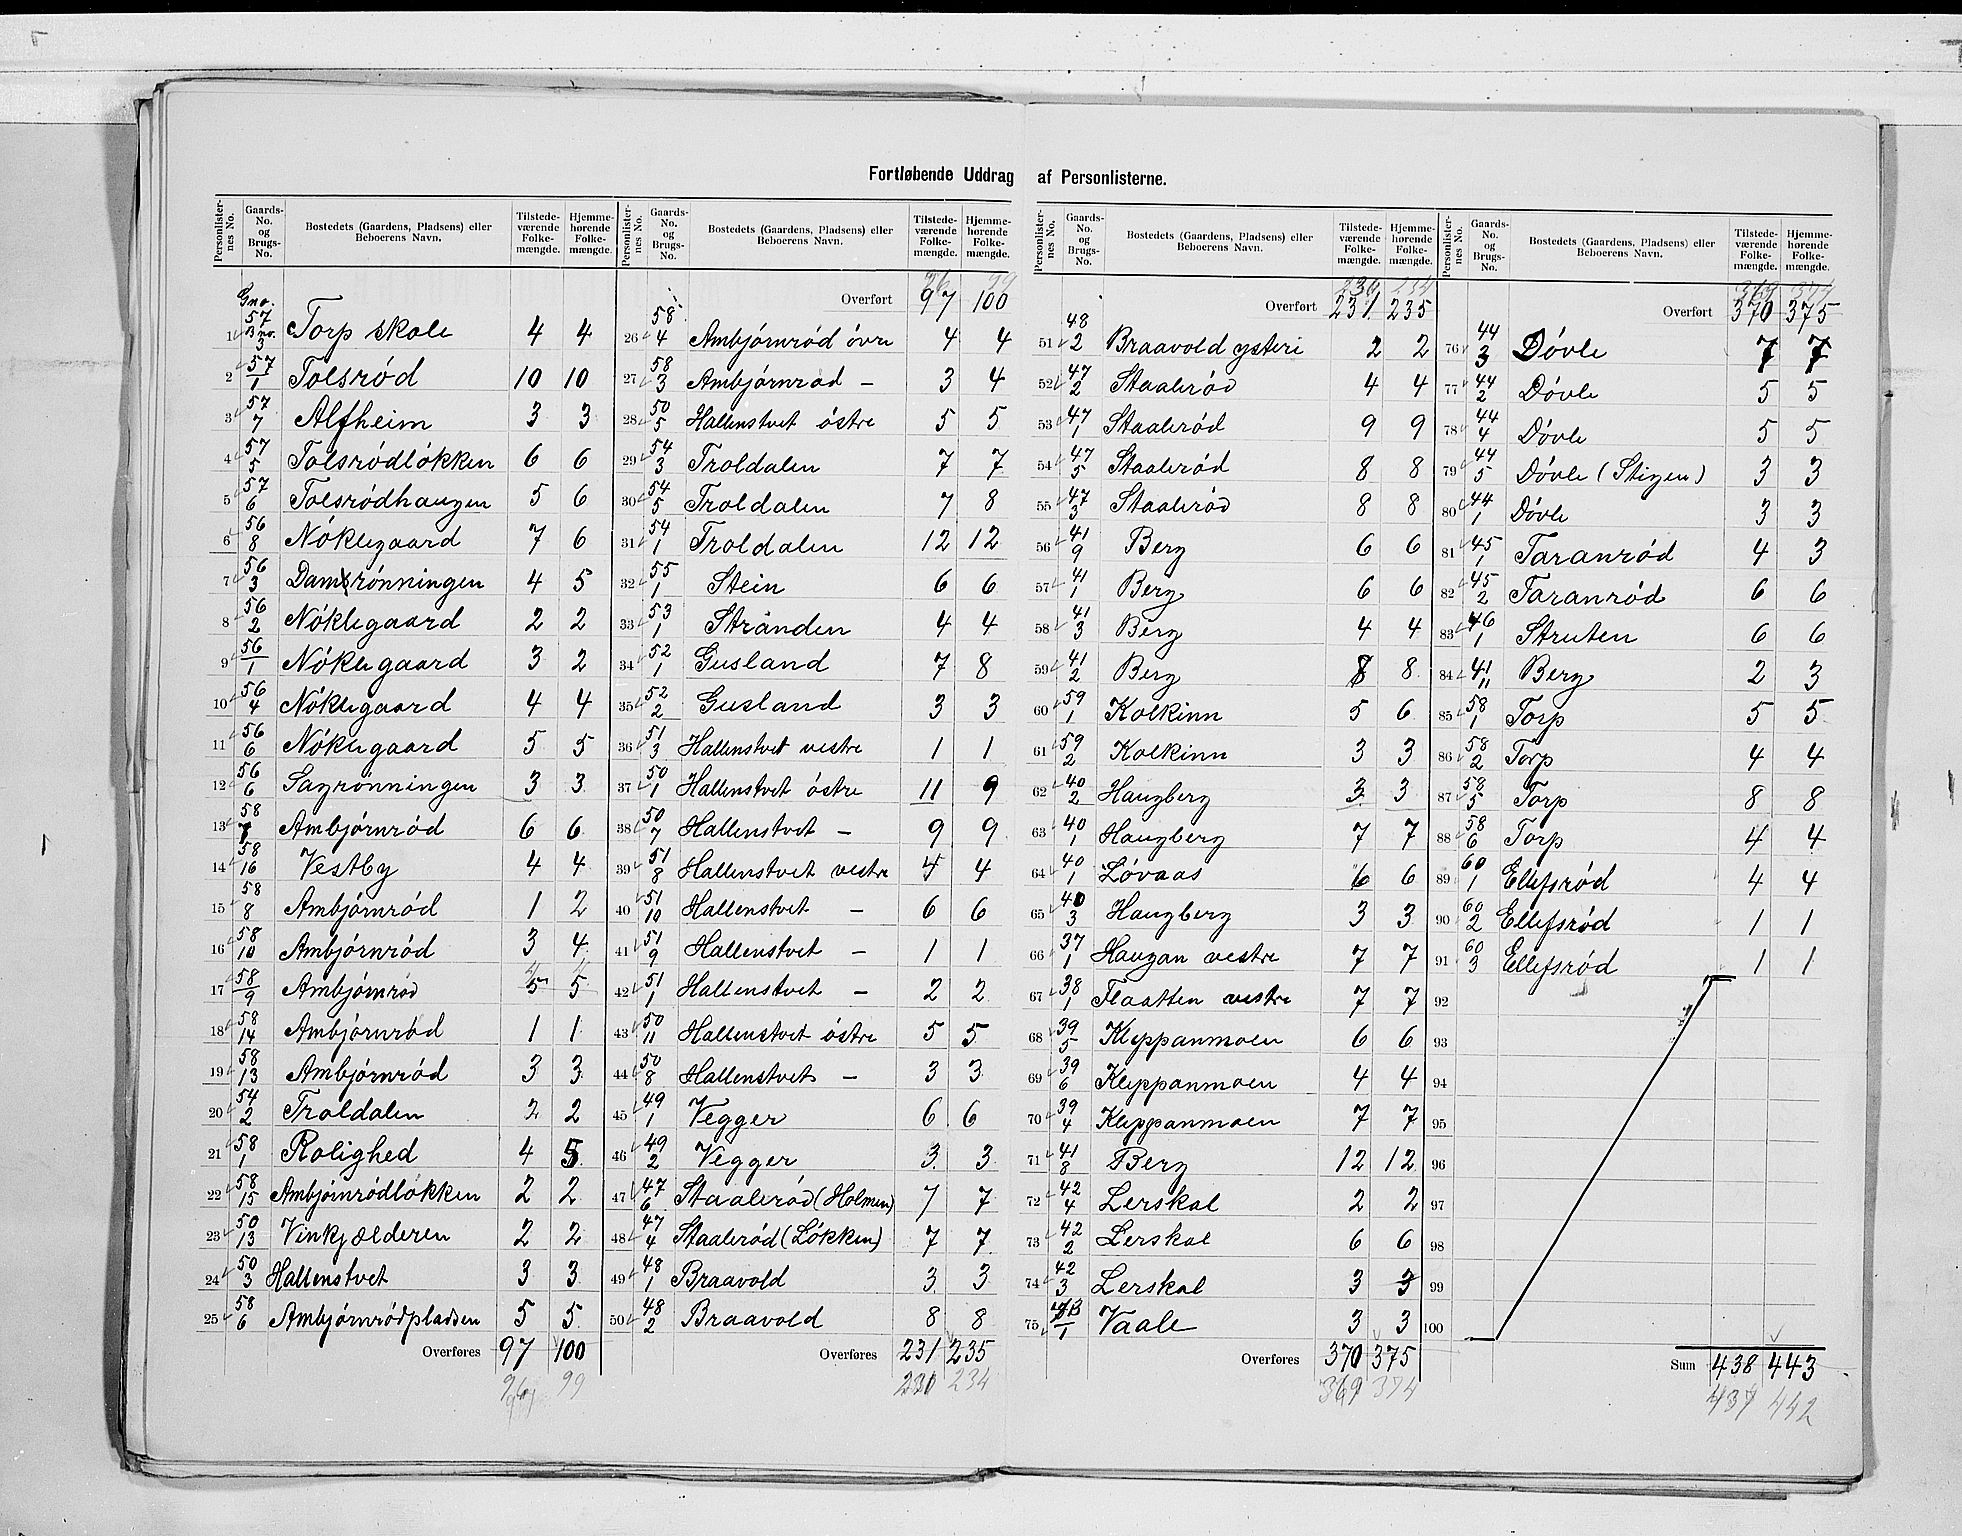 Fortløbende Uddrag af Personlisterne.
Personlister-nes No. Gaards-No. og Brugs-No. Bostedets (Gaardens, Pladsens) eller Beboerens Navn. Tilstede-værende Folke-mængde. Hjemme-hørende Folke-mængde.
Gno. Bno.
1 57/3 Torp skole 4 4
2 57/1 Tolsrød 10 10
3 57/7 Alfheim 3 3
4 57/5 Tolsrødløkken 6 6
5 57/6 Tolsrødhaugen 5 6
6 56/8 Nøklegaard 7 6
7 56/3 Damsrønningen 4 5
8 56/2 Nøklegaard 2 2
9 56/1 Nøklegaard 3 2
10 56/4 Nøklegaard 4 4
11 56/6 Nøklegaard 5 5
12 56/6 Sagrønningen 3 3
13 58/7 Ambjørnrød 6 6
14 58/16 Vestby 4 4
15 58/8 Ambjørnrød 1 2
16 58/10 Ambjørnrød 3 4
17 58/9 Ambjørnrød 5 5
4 4
18 58/14 Ambjørnrød 1 1
19 58/13 Ambjørnrød 3 3
20 54/2 Troldalen 2 2
21 58/1 Rolighed 4 5
22 58/15 Ambjørnrødløkken 2 2
23 50/13 Vinkjælderen 2 2
24 50/3 Hallenstvet 3 3
25 58/6 Ambjørnrødpladsen 5 5
Overføres 97 100
96 99
Personlister-nes No. Gaards-No. og Brugs-No. Bostedets (Gaardens, Pladsens) eller Beboerens Navn. Tilstede-værende Folke-mængde. Hjemme-hørende Folke-mængde.
96 99
Overført 97 100
26 58/4 Ambjørnrød øvre 4 4
27 58/3 Ambjørnrød — 3 4
28 50/5 Hallenstvet østre 5 5
29 54/3 Troldalen 7 7
30 54/5 Troldalen 7 8
31 54/1 Troldalen 12 12
32 55/1 Stein 6 6
33 53/1 Stranden 4 4
34 52/1 Gusland 7 8
35 52/2 Gusland 3 3
36 51/3 Hallenstvet vestre 1 1
37 50/1 Hallenstvet østre 11 9
38 50/7 Hallenstvet — 9 9
39 51/8 Hallenstvet vestre 4 4
40 51/10 Hallenstvet — 6 6
41 51/9 Hallenstvet — 1 1
42 51/1 Hallenstvet — 2 2
43 50/11 Hallenstvet østre 5 5
44 50/8 Hallenstvet — 3 3
45 49/1 Vegger 6 6
46 49/2 Vegger 3 3
47 47/6 Staalerød (Holmen) 7 7
48 47/4 Staalerød (Løkken) 7 7
49 48/1 Braavold 3 3
50 48/2 Braavold 8 8
Overføres 231 235
230 234
Personlister-nes No. Gaards-No. og Brugs-No. Bostedets (Gaardens, Pladsens) eller Beboerens Navn. Tilstede-værende Folke-mængde. Hjemme-hørende Folke-mængde.
230 234
Overført 231 235
51 48/2 Braavold ysteri 2 2
52 47/2 Staalerød 4 4
53 47/1 Staalerød 9 9
54 47/5 Staalerød 8 8
55 47/3 Staalerød 8 8
56 41/9 Berg 6 6
57 41/1 Berg 6 6
58 41/3 Berg 4 4
59 41/2 Berg 8 8
60 59/1 Kolkinn 5 6
61 59/2 Kolkinn 3 3
62 40/2 Haugberg 3 3
63 40/1 Haugberg 7 7
64 40/1 Løvaas 6 6
65 40/3 Haugberg 3 3
66 37/1 Haugan vestre 7 7
67 38/1 Flaatten vestre 7 7
68 39/5 Kleppanmoen 6 6
69 39/6 Kleppanmoen 4 4
70 39/4 Kleppanmoen 7 7
71 41/8 Berg 12 12
72 42/4 Lerskal 2 2
73 42/2 Lerskal 6 6
74 42/3 Lerskal 3 3
75 43/1 Vaale 3 3
Overføres 370 375
369 374
Personlister-nes No. Gaards-No. og Brugs-No. Bostedets (Gaardens, Pladsens) eller Beboerens Navn. Tilstede-værende Folke-mængde. Hjemme-hørende Folke-mængde.
369 374
Overført 370 375
76 44/3 Døvle 7 7
77 44/2 Døvle 5 5
78 44/4 Døvle 5 5
79 44/5 Døvle (Stigen) 3 3
80 44/1 Døvle 3 3
81 45/1 Taranrød 4 3
82 45/2 Taranrød 6 6
83 46/1 Struten 6 6
84 41/11 Berg 2 3
85 58/1 Torp 5 5
86 58/2 Torp 4 4
87 58/5 Torp 8 8
88 58/6 Torp 4 4
89 60/1 Ellefsrød 4 4
90 60/2 Ellefsrød 1 1
91 60/3 Ellefsrød 1 1
92
93
94
95
96
97
98
99
100
Sum 438 443
437 442